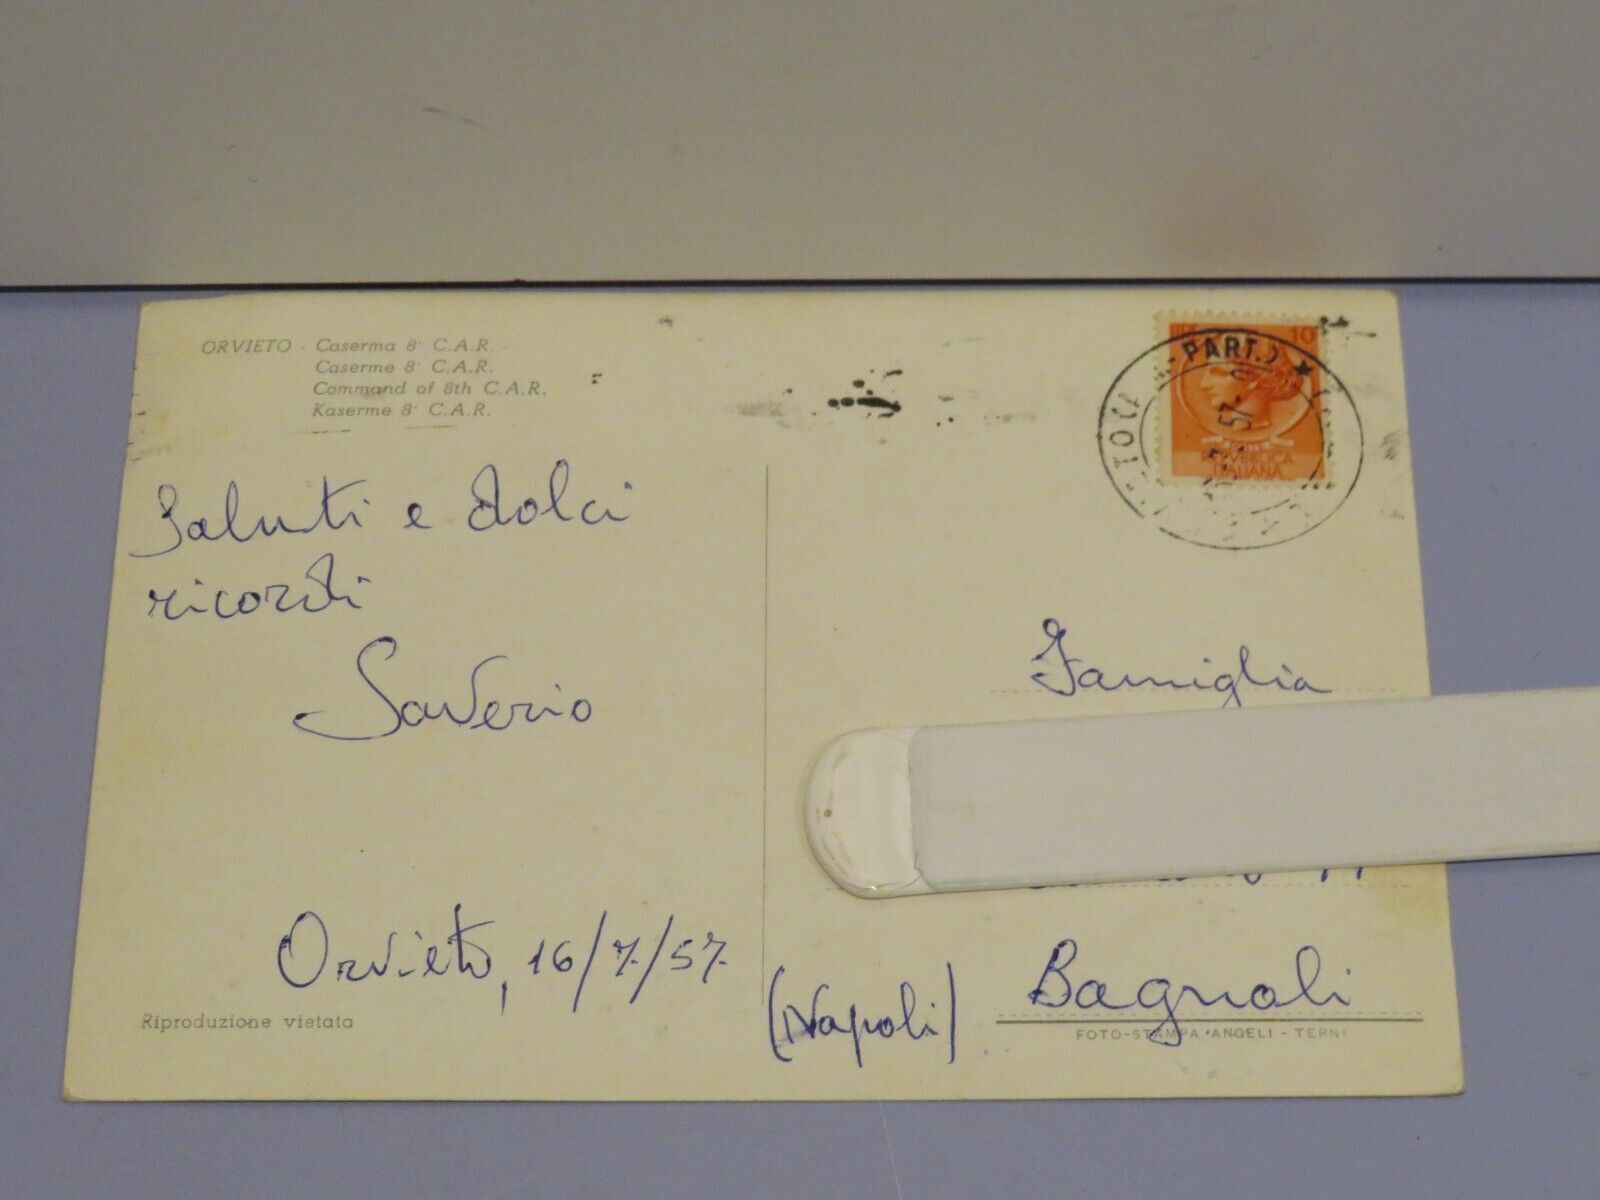 ORVIETO - Caserma 8° C.A.R.
Caserme 8° C.A.R.
Command of 8th C.A.R.
Kaserme 8° C.A.R.
Saluti e dolci
ricordi
Saverio
Orvieto, 16/7/57
Riproduzione vietata
10
PART.
57
REPVBBLICA
ITALIANA
Famiglia
Bagnoli
(Napoli)
FOTO-STAMPA ANGELI - TERNI